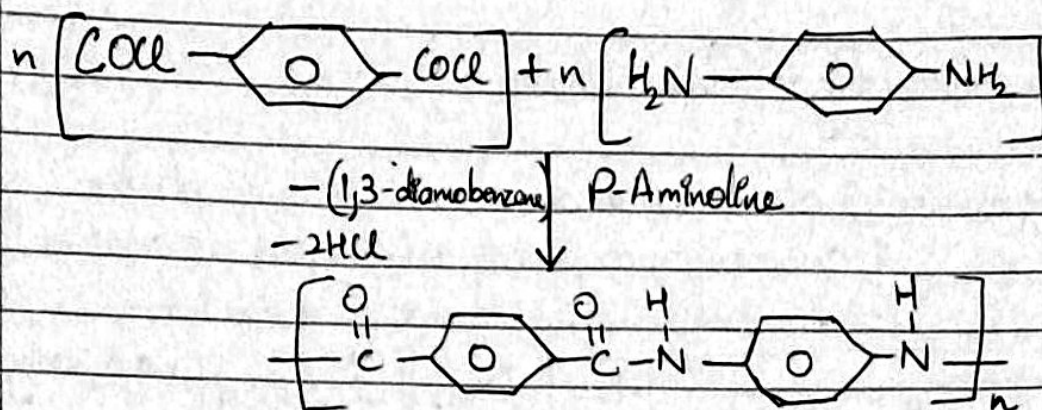 n [COCl — O — COCl] + n [H₂N — O — NH₂]
-(1,3-diamobenzene) P-Aminoline
-2HCl
O O H H
[— C — O — C — N — O — N —]n